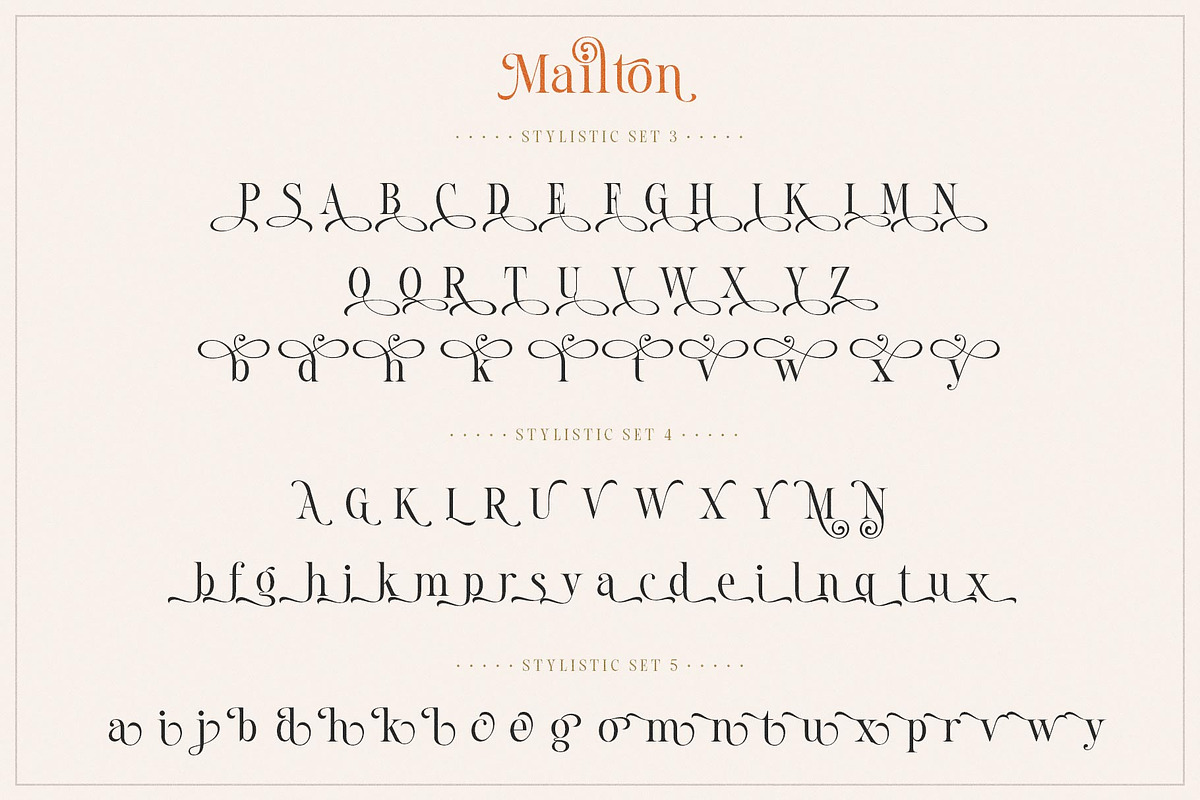 Mailton
· · · · · STYLISTIC SET 3 · · · · ·
P S A B C D E F G H I K L M N
O Q R T U V W X Y Z
b d h k l t v w x y
· · · · · STYLISTIC SET 4 · · · · ·
A G K L R U V W X Y M N
b f g h j k m p r s y a c d e i l n q t u x
· · · · · STYLISTIC SET 5 · · · · ·
a i j b d h k b c e g o m n t u x p r v w y